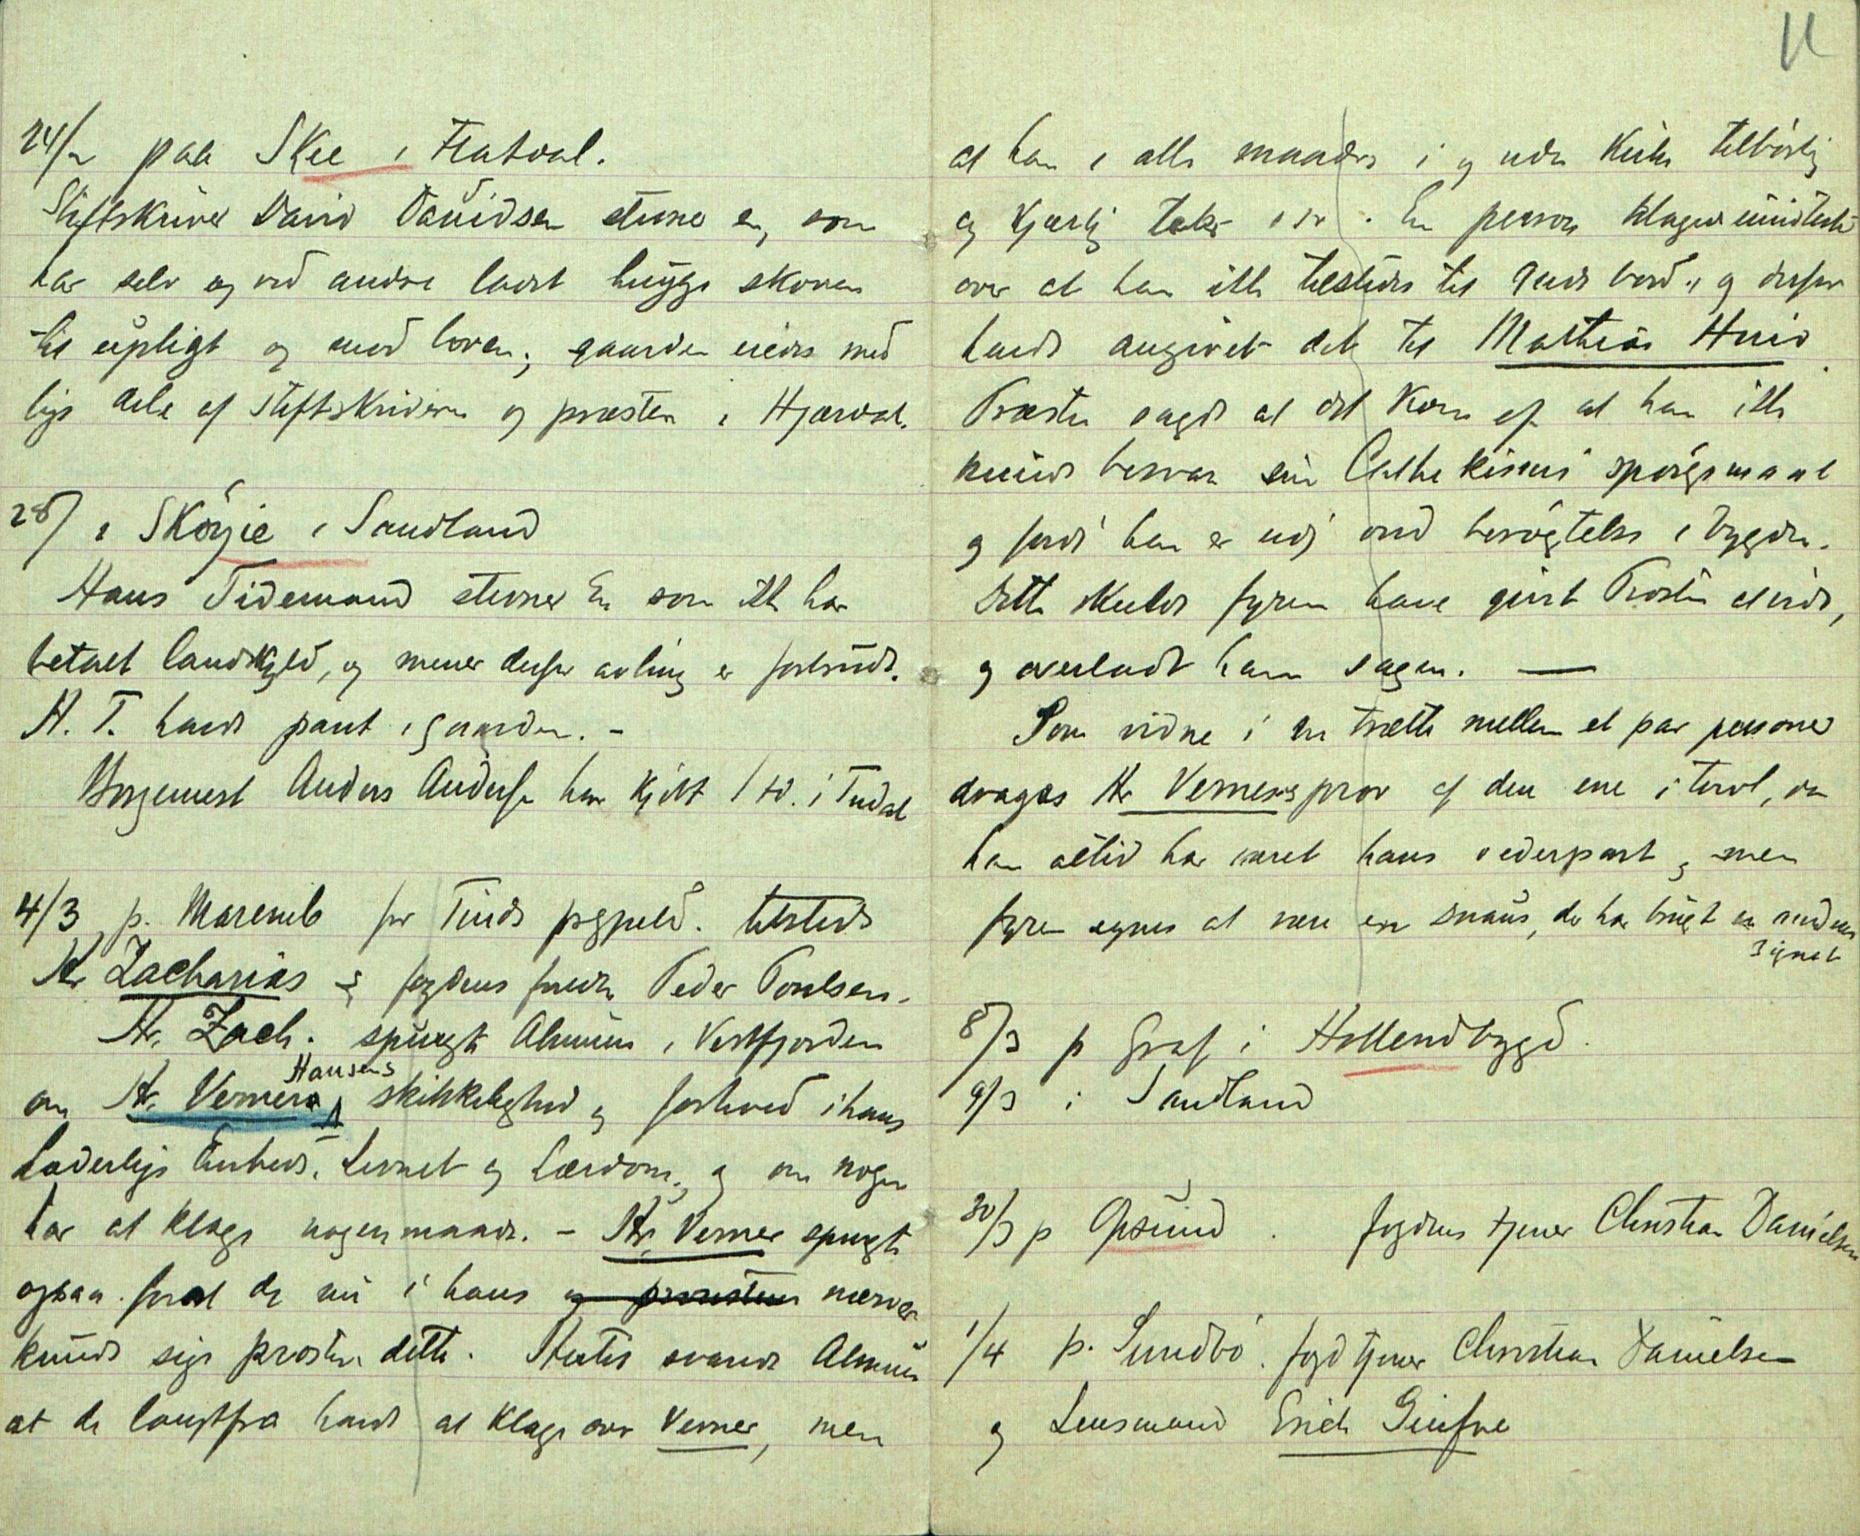 24/2 paa Skee i Flatdal.
Stiftskriver David Davidsen stevner en, som
har selv og ved andre ladet hugge skoven
til upligt og mod loven; gaarden eiedes med
lige dele af Stiftskriveren og præsten i Hjærdal.
28/ i Skøyie i Sandland
Hans Tidemand stevner En som ikke har
betalt landskyld, og mener derfor avling er forbrudt.
H. T. havde pant i gaarden. -
Borgemest Anders Anders har kjøbt 1 td. i Tudal
4/3 p. Marenib for Tinds prgjeld. tilsteds
Hr Zacharias og fogdens Peder Poulsen.
Hr. Zach. spurgte Almuen i Vestfjorden
om Hr. Verners Hansens skikkelighed og forhved i hans
Lærdom, og om nogen
har at klage nogenmaade. - Hr. Verner spurgte
ogsaa forat de nu i hans og præsten nærvær
kunde sige prosten dette. Hertil svarede Almuen
at de langtfra havde at klage over Verner, men
11
at han i alle maader i og uden Kirke tilbørlig
og kjærlig En person klager
over at han ikke tilstedes til Guds bord, og derfor
havde angivet det til Mathias Hvid.
Præsten sagde at det Kom af at han ikke
kunde besvare sin Cathekismi spørgsmaal
og fordi han er udj ond berøgtelse i bygden.
Dette skulde fyren have giort Prosten
og overladt ham sagen. —
Som vidne i en trætte mellem et par personer
drages Hr Verners prov af den ene i tvivl, da
han altid har været hans vederpart, men
fyren synes at være en snaus, der har brugt en andens
signet
8/3 p Graf i Hollendbygd.
9/3 i Sandland
30/3 p Opsund. fogdens tjener Christian Danielsen
1/4 p. Sundbö. fogdtjener Christian Danielsen
og Lensmand Erich Giufne